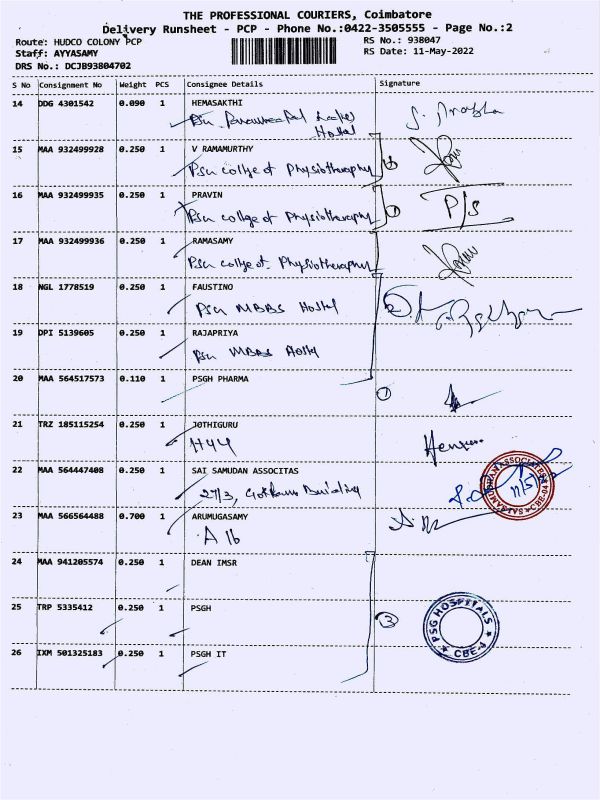 THE PROFESSIONAL COURIERS, Coimbatore
Delivery Runsheet - PCP - Phone No.:0422-3505555 - Page No.:2
Route: HUDCO COLONY PCP
RS No.: 938047
Staff: AYYASAMY
RS Date: 11-May-2022
DRS No.: DCJB93804702
S No Consignment No Weight PCS Consignee Details Signature
14 DDG 4301542 0.090 1 HEMASAKTHI
Hostel
15 MAA 932499928 0.250 1 V RAMAMURTHY
PSG college of Physiotheraphy
16 MAA 932499935 0.250 1 PRAVIN
PSG college of Physiotheraphy
P/S
17 MAA 932499936 0.250 1 RAMASAMY
PSG college of Physiotheraphy
18 NGL 1778519 0.250 1 FAUSTINO
PSG MBBS Hostel
19 DPI 5139605 0.250 1 RAJAPRIYA
PSG MBBS Hostel
20 MAA 564517573 0.110 1 PSGH PHARMA
21 TRZ 185115254 0.250 1 JOTHIGURU
H44
22 MAA 564447408 0.250 1 SAI SAMUDAN ASSOCITAS
27/3, Building
23 MAA 566564488 0.700 1 ARUMUGASAMY
A 16
24 MAA 941205574 0.250 1 DEAN IMSR
25 TRP 5335412 0.250 1 PSGH
3
PSG HOSPITALS
CBE-4
26 IXM 501325183 0.250 1 PSGH IT